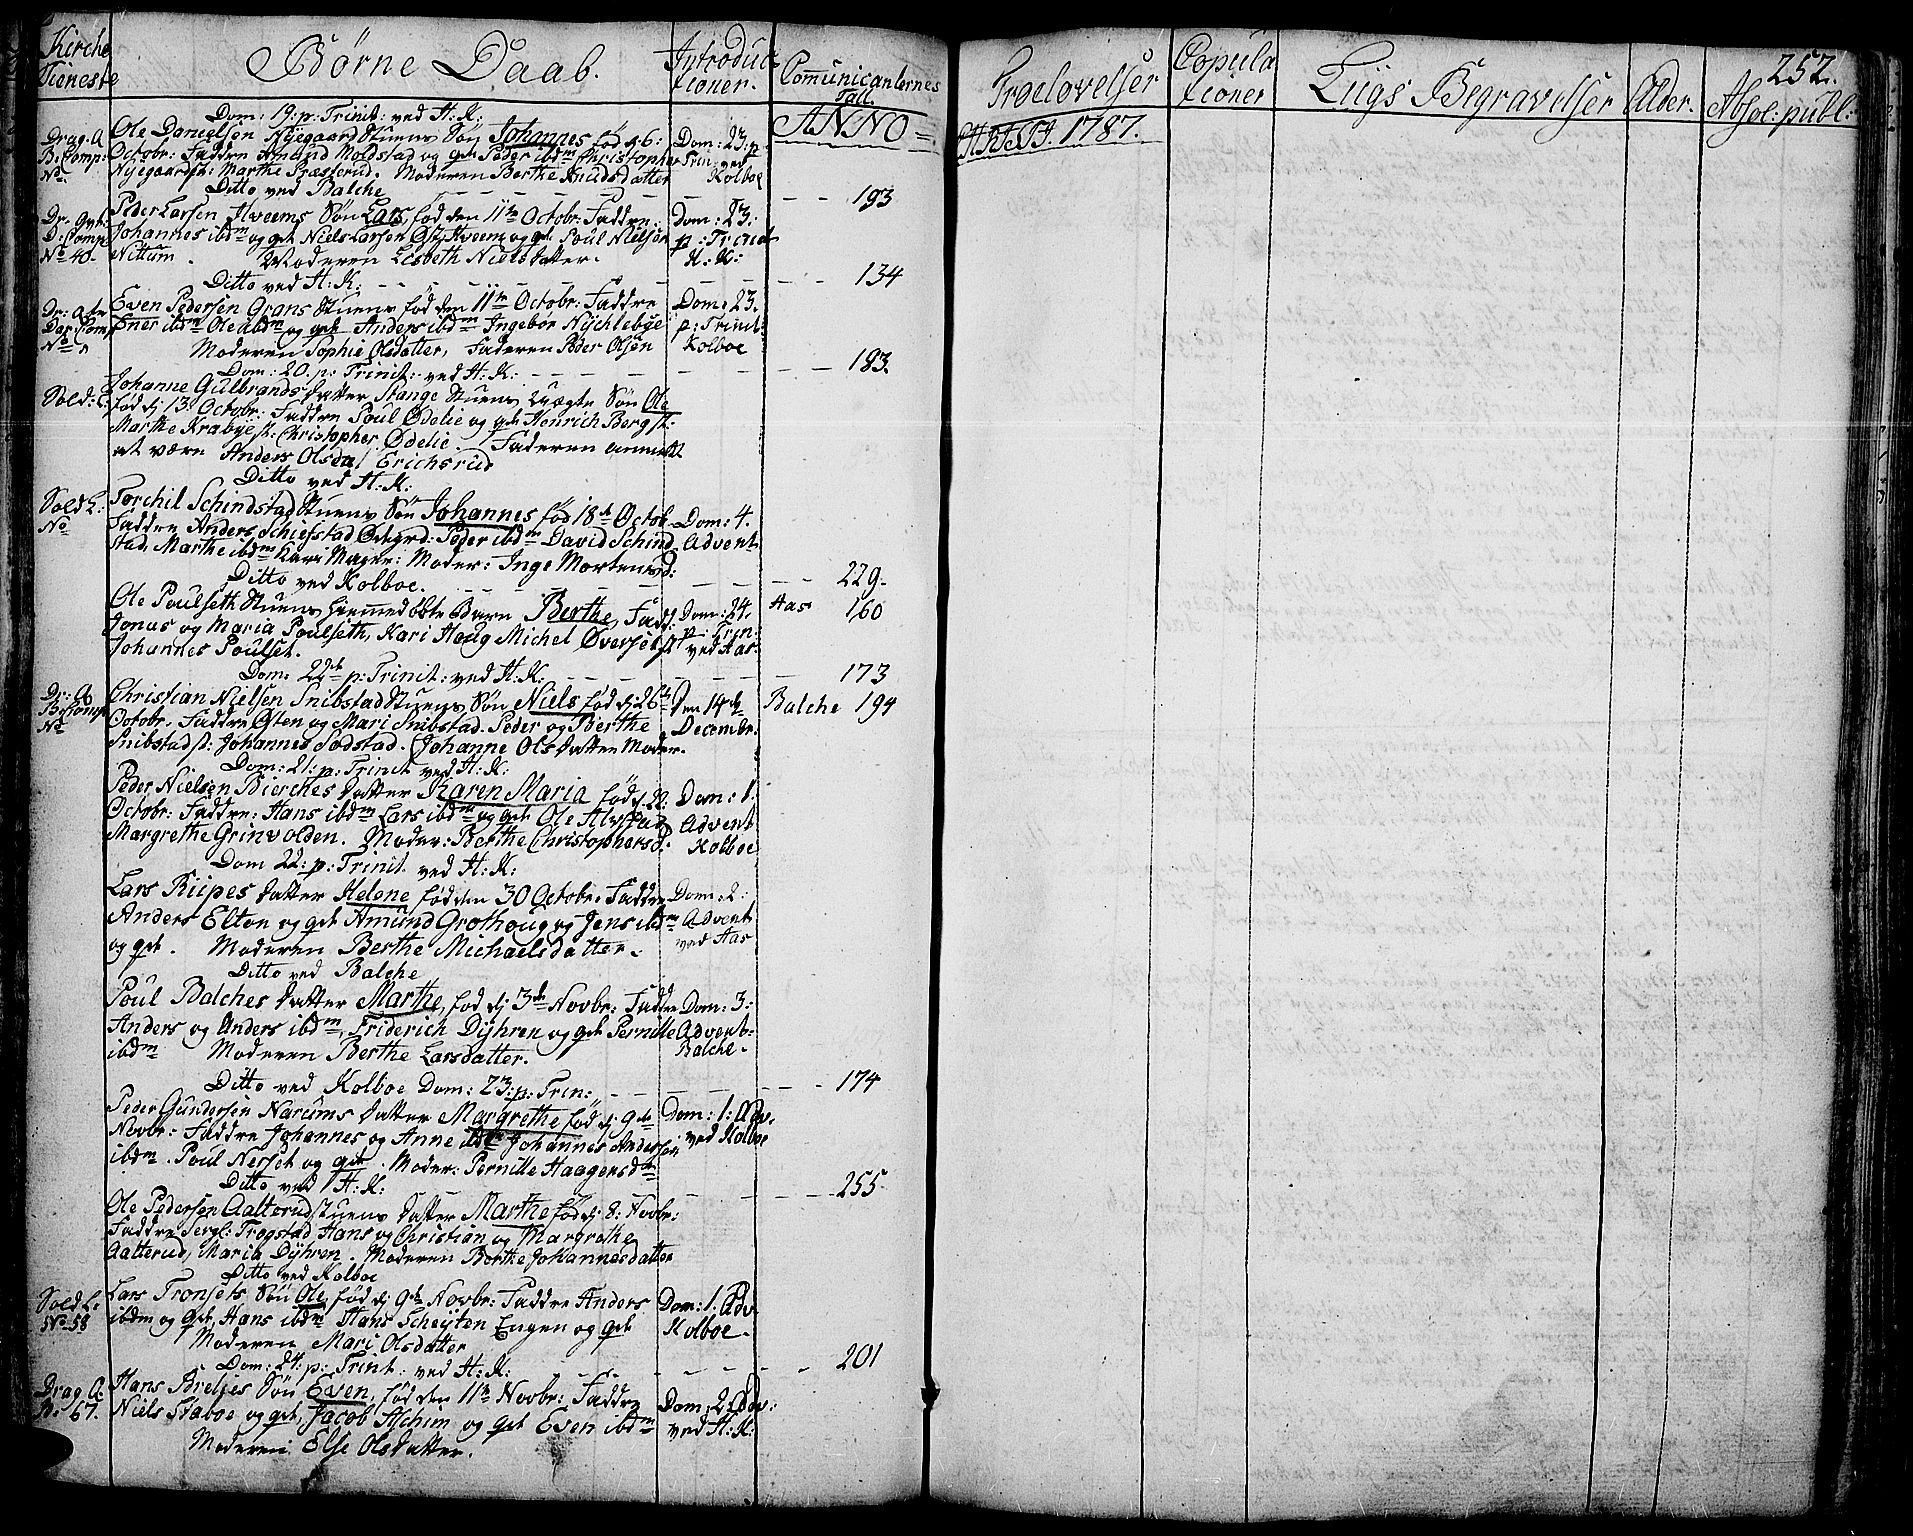 Kirche Tieneste
Børne Daab.
Introductioner.
Communicanternes Tall.
Proclovelser
Copulationer
Liigs Begravelser
Alder.
Absol: publ:
252.
ANNO 1787.
Dom: 19: p: Trinit: ved H: K:
Drag. A
B. Comp:
No
Ole Danielsen Nyegaard Stuens Søn Johannes fød d 6:
Octobr: Faddre Amund Moldstad og qvt Peder ibdm Christopher
Nyegaardst: Marthe Præsterud. Moderen Berthe Knudsdatter
Dom: 23: p
Trin: ved
Kolboe
Ditto ved Balche - - - 193
Dr. qvt.
D. Comp:
No 40.
Peder Larsen Hveems Søn Lars fød den 11te Octobr: Faddre
Johannes ibdm og qvt Niels Larsen Øst Hveem og qvt Poul Nielsøn
Nittum. Moderen Lisbeth Nielsdatter.
Dom: 23:
p: Trinit
H: K:
Ditto ved H: K: - - - 134
No
Even Pedersen Grans Stuens fød den 11te Octobr: Faddre
Enes ibdm Ole ibdm og qvt Anders ibdm Ingebor Nychlebye
Moderen Sophie Olsdatter, Faderen Peder Olsen
Dom: 23.
p: Trinit:
Kolboe
183.
Dom: 20. p: Trinit: ved H: K:
Sold: L:
Johanne Gulbrandsdatter Stange Stuens Uægte Søn Ole
fød dj 13 Octobr: Faddre Poul Ødelie og qvt Henrich Bergst:
Marthe Krabyest: Christopher Ødelie. Faderen anmeldt
at være Anders Olsen Erichsrud
Ditto ved H: K:
Sold L:
No
Torchil Schindstad Stuens Søn Johannes fød 18de Octob.
Faddre Anders Schiefstad Ødegrd: Peder ibdm David Schindstad,
Marthe ibdm Kari Majer: Moder: Inge Mortensd:
Dom: 4.
Advent
Ditto ved Kolboe. - - - 229.
Ole Poulseth Stuens hiemmedøbte Barn Berthe, Fadd:
Jonas og Maria Poulseth, Kari Haug Michel Øverset st
Johannes Poulset.
Dom: 24.
p Trin:
ved Aas
Aas 160
Dom: 22de p: Trinit: ved H: K: - - - 173
Dr: A
B: Comp:
No
Christian Nielsen Snibstad Stuens Søn Niels fød dj 26de
Octobr. Faddre Østen og Mari Snibstad. Peder og Berthe
Snibstadst: Johannes Sodstad. Johanne Olsdatter Moder.
Den 14de
Decembr:
Balche 194
Dom: 21: p: Trinit ved H: K:
Peder Nielsen Bierches datter Karen Maria fød d.
Octobr: Faddre: Hans ibdm Lars ibdm og qvt Ole Alvstad
Margrethe Grinvolden. Moder: Berthe Christophersd:
Dom: 1.
Advent
Kolboe
Dom 22: p: Trinit. ved H: K:
Lars Riipes datter Helene fød den 30 Octobr: Faddre
Anders Elton og qvt Amund Grothoug og Jens ibdm
og qvt. Moderen Berthe Michaelsdatter.
Dom: 2:
Advent
ved Aas
Ditto ved Balche
Poul Balches datter Marthe, fød dj 3de Novbr: Faddre
Anders og Anders ibdm, Friderich Dyhren og qvt Pernille
ibdm Moderen Berthe Larsdatter.
Dom: 3:
Advent:
Balche.
Ditto ved Kolboe Dom: 23: p: Trin: - - - 174
Peder Gundersen Narums datter Margrethe fød dj 9de
Novbr: Faddre Johannes og Anne ibdm Johannes Andersen
ibdm. Poul Nerset og qvt. Moder: Pernille Haagensd
Dom: 1: Adv.
ved Kolboe
Ditto ved H: K: - - - 255
Ole Pedersen Aalterud stuens datter Marthe fød dj 8: Novbr:
Faddre Sergt: Trogstad Hans og Christian og Margrethe
Aalterud, Maria Dyhren. Moderen Berthe Johannesdatter
Ditto ved Kolboe
Sold L:
No 58
Lars Tronsets Søn Ole, fød dj 9de Novbr: Faddre Anders
ibdm og qvt, Hans ibdm Hans Scheyten Engen og qvt
Moderen Mari Olsdatter
Dom: 1. Adv
Kolboe.
Dom: 24: p: Trinit: ved H: K: - - - 201
Drag. A.
N: 67.
Hans Brelies Søn Even, fød den 11te Novbr: Faddre
Niels Staboe og qvt, Jacob Aschim og qvt Even ibdm
Moderen Else Olsdatter.
Dom: 2 Adv:
ved H: K: